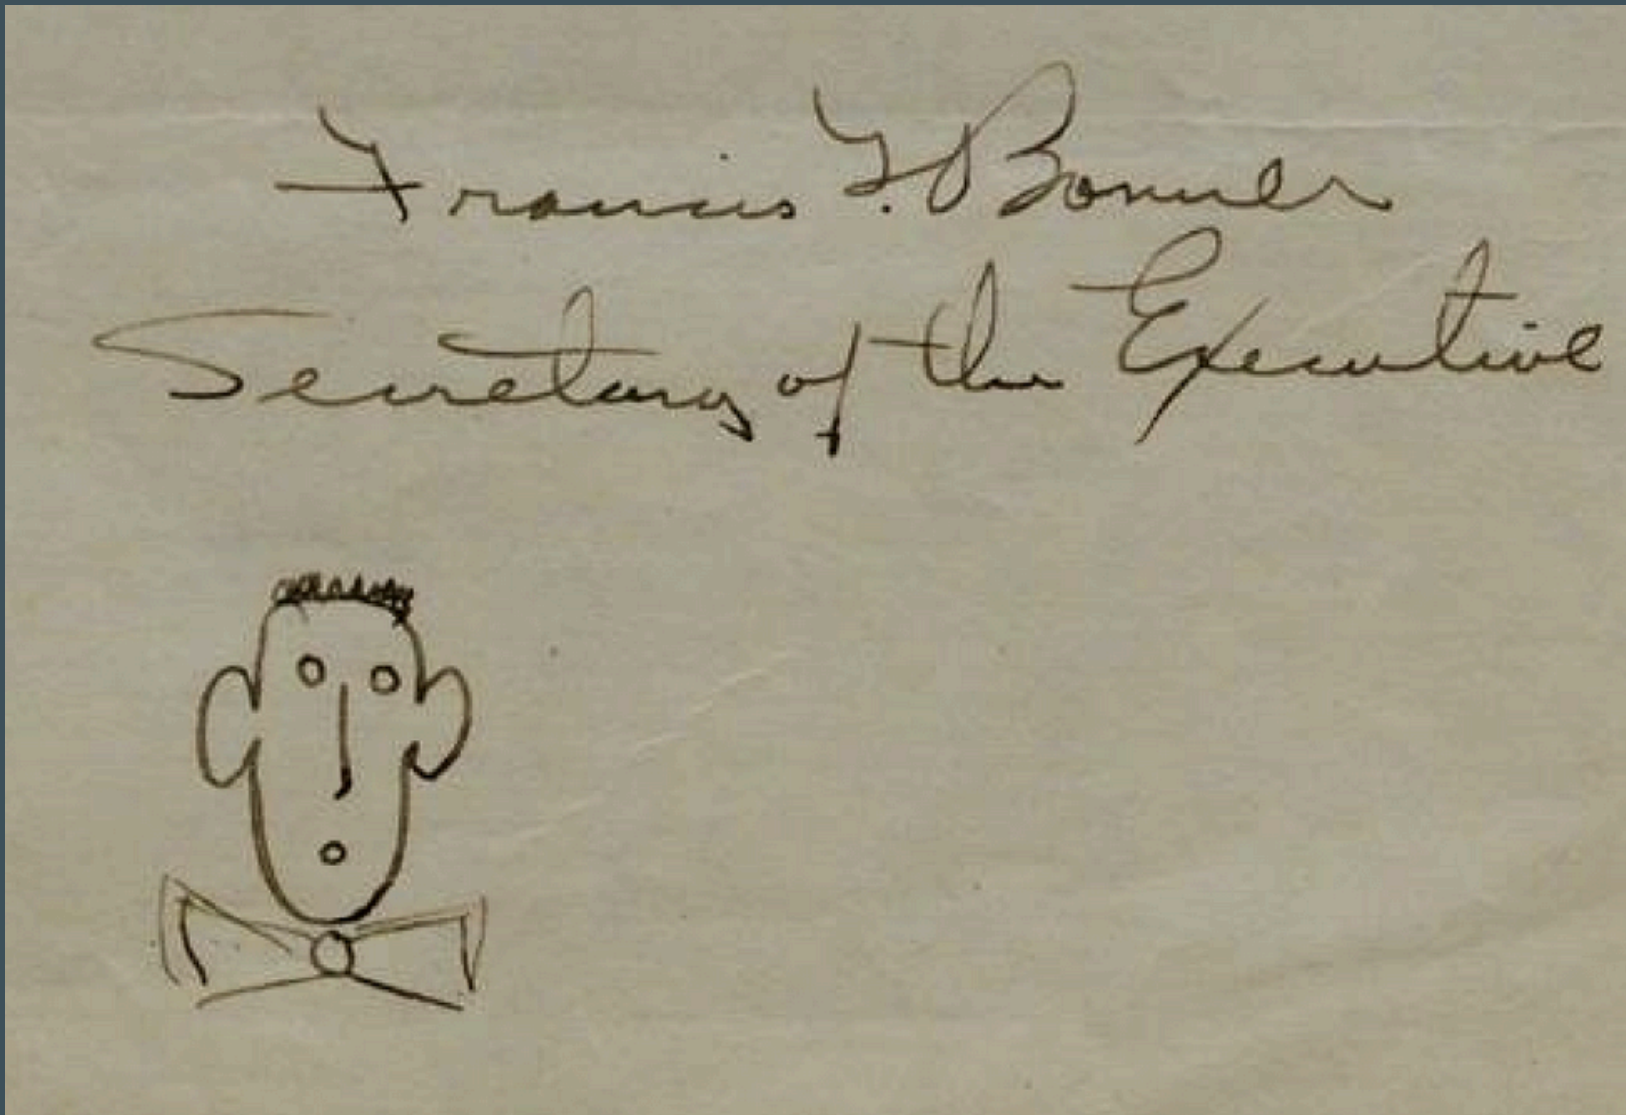 Francis Y. Bonner
Secretary of the Executive